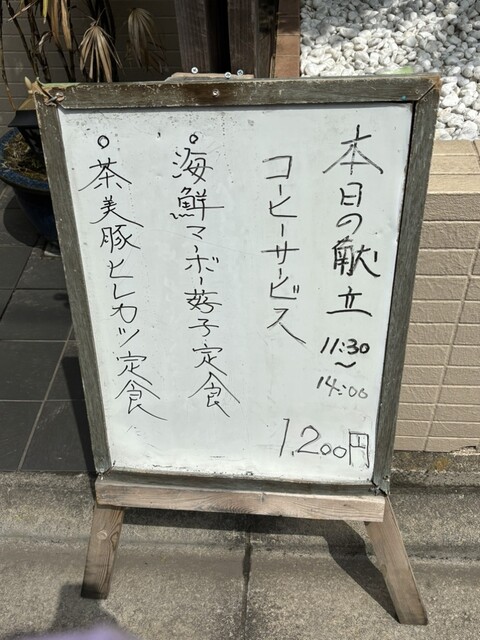 本日の献立
11:30
〜
14:00
コーヒーサービス
1,200円
○海鮮マーボー茄子定食
○茶美豚ヒレカツ定食